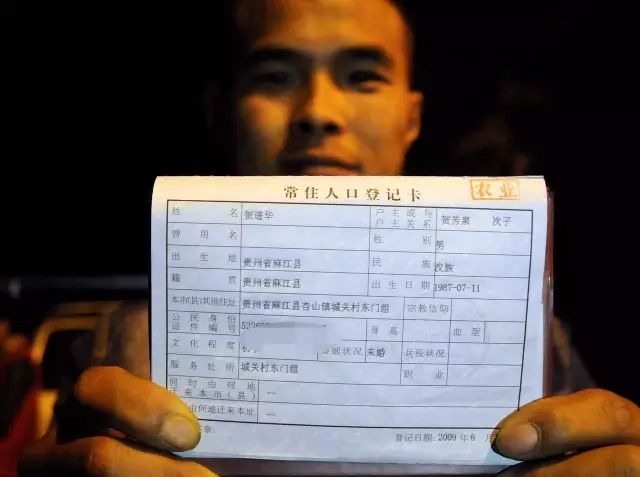 常住人口登记卡 农业
姓名 贺进华 户主或与户主关系 贺芳泉 次子
曾用名 性别 男
出生地 贵州省麻江县 民族 汉族
籍贯 贵州省麻江县 出生日期 1987-07-11
本市(县)其他住址 贵州省麻江县杏山镇城关村东门组 宗教信仰
公民身份证件编号 522 身高 血型
文化程度 初 婚姻状况 未婚 兵役状况
服务处所 城关村东门组 职业
何时由何地迁来本市(县) —
由何地迁来本址 —
登记日期: 2009 年 6